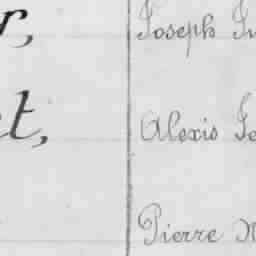 r, Joseph
et, Alexis
Pierre